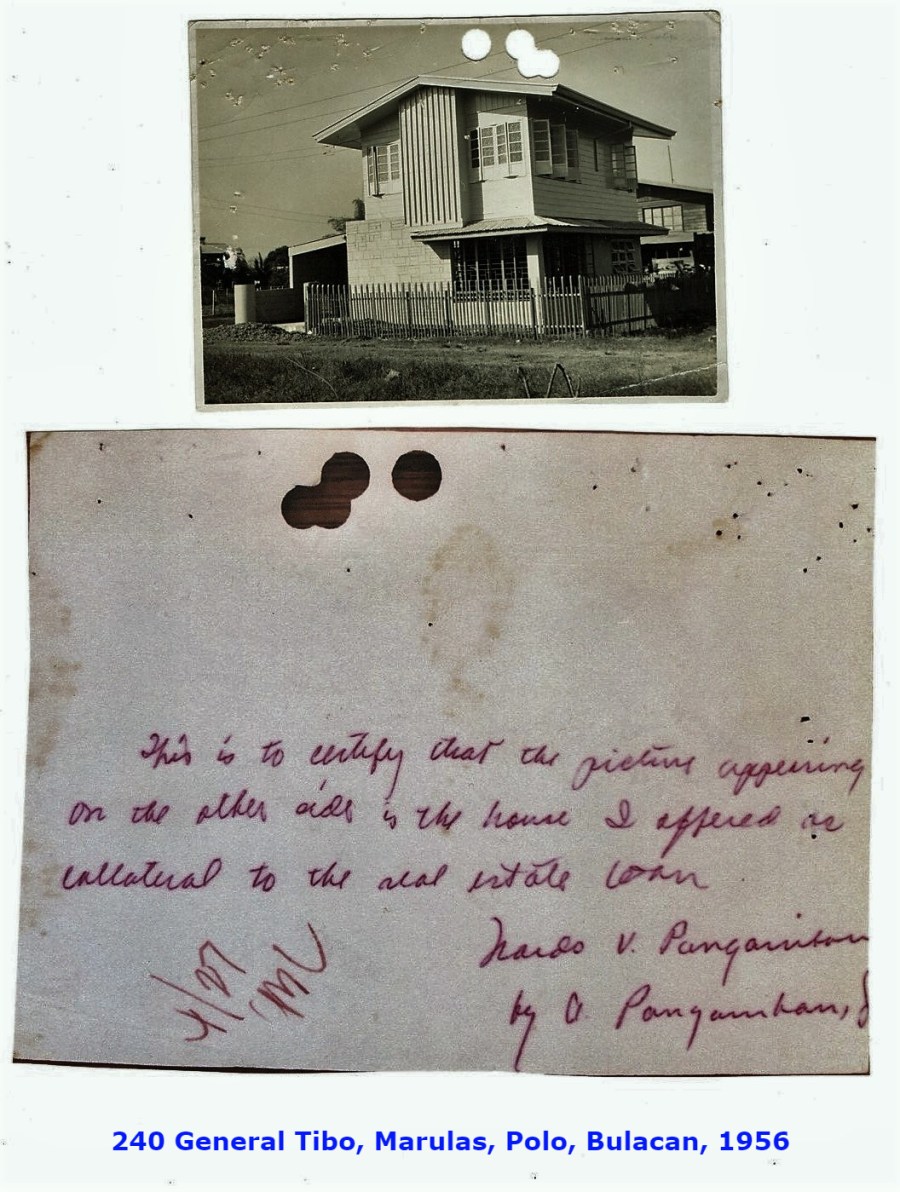 This is to certify that the picture appearing
on the other side is the house I offered as
collateral to the real estate loan
V. Pangamiban
by A. Pangamiban, J
4/27
240 General Tibo, Marulas, Polo, Bulacan, 1956